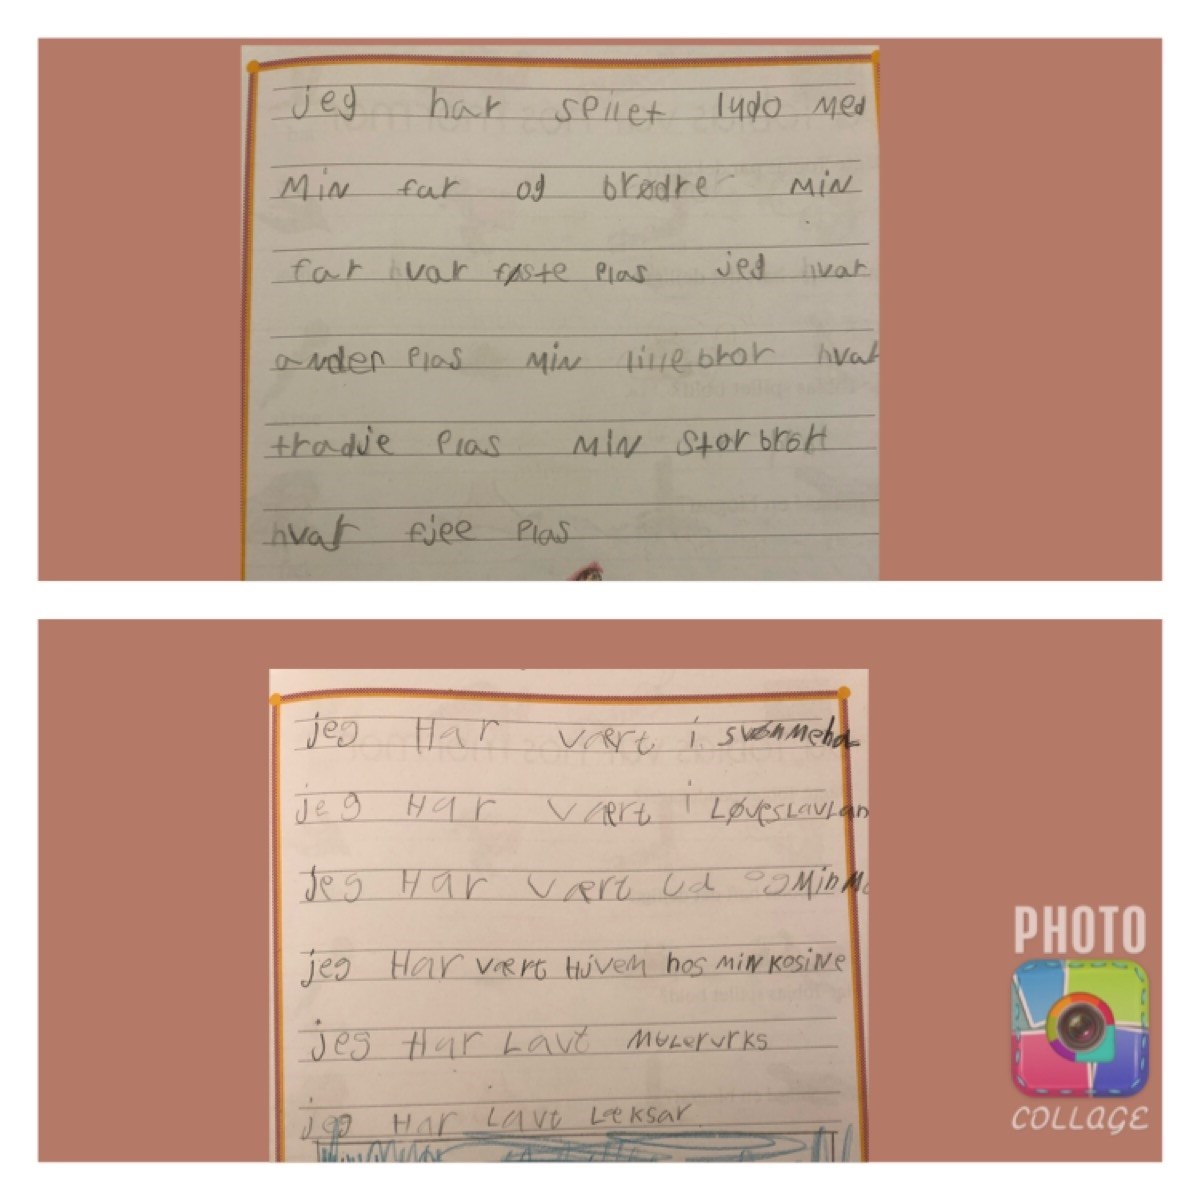 jeg har spillet ludo med
Min far og brødre min
far hvar føste plas jed hvar
anden plas min lillebror hvar
tradje plas min storbror
hvar fjee plas
jeg Har vært i svømmeha
jeg Har vært i Løveslavlan
jeg Har vært ud og Min Mo
jeg Har vært Hjvem hos min kosine
jeg Har Lavt Malervrks
jeg Har Lavt Læksar
PHOTO
COLLAGE